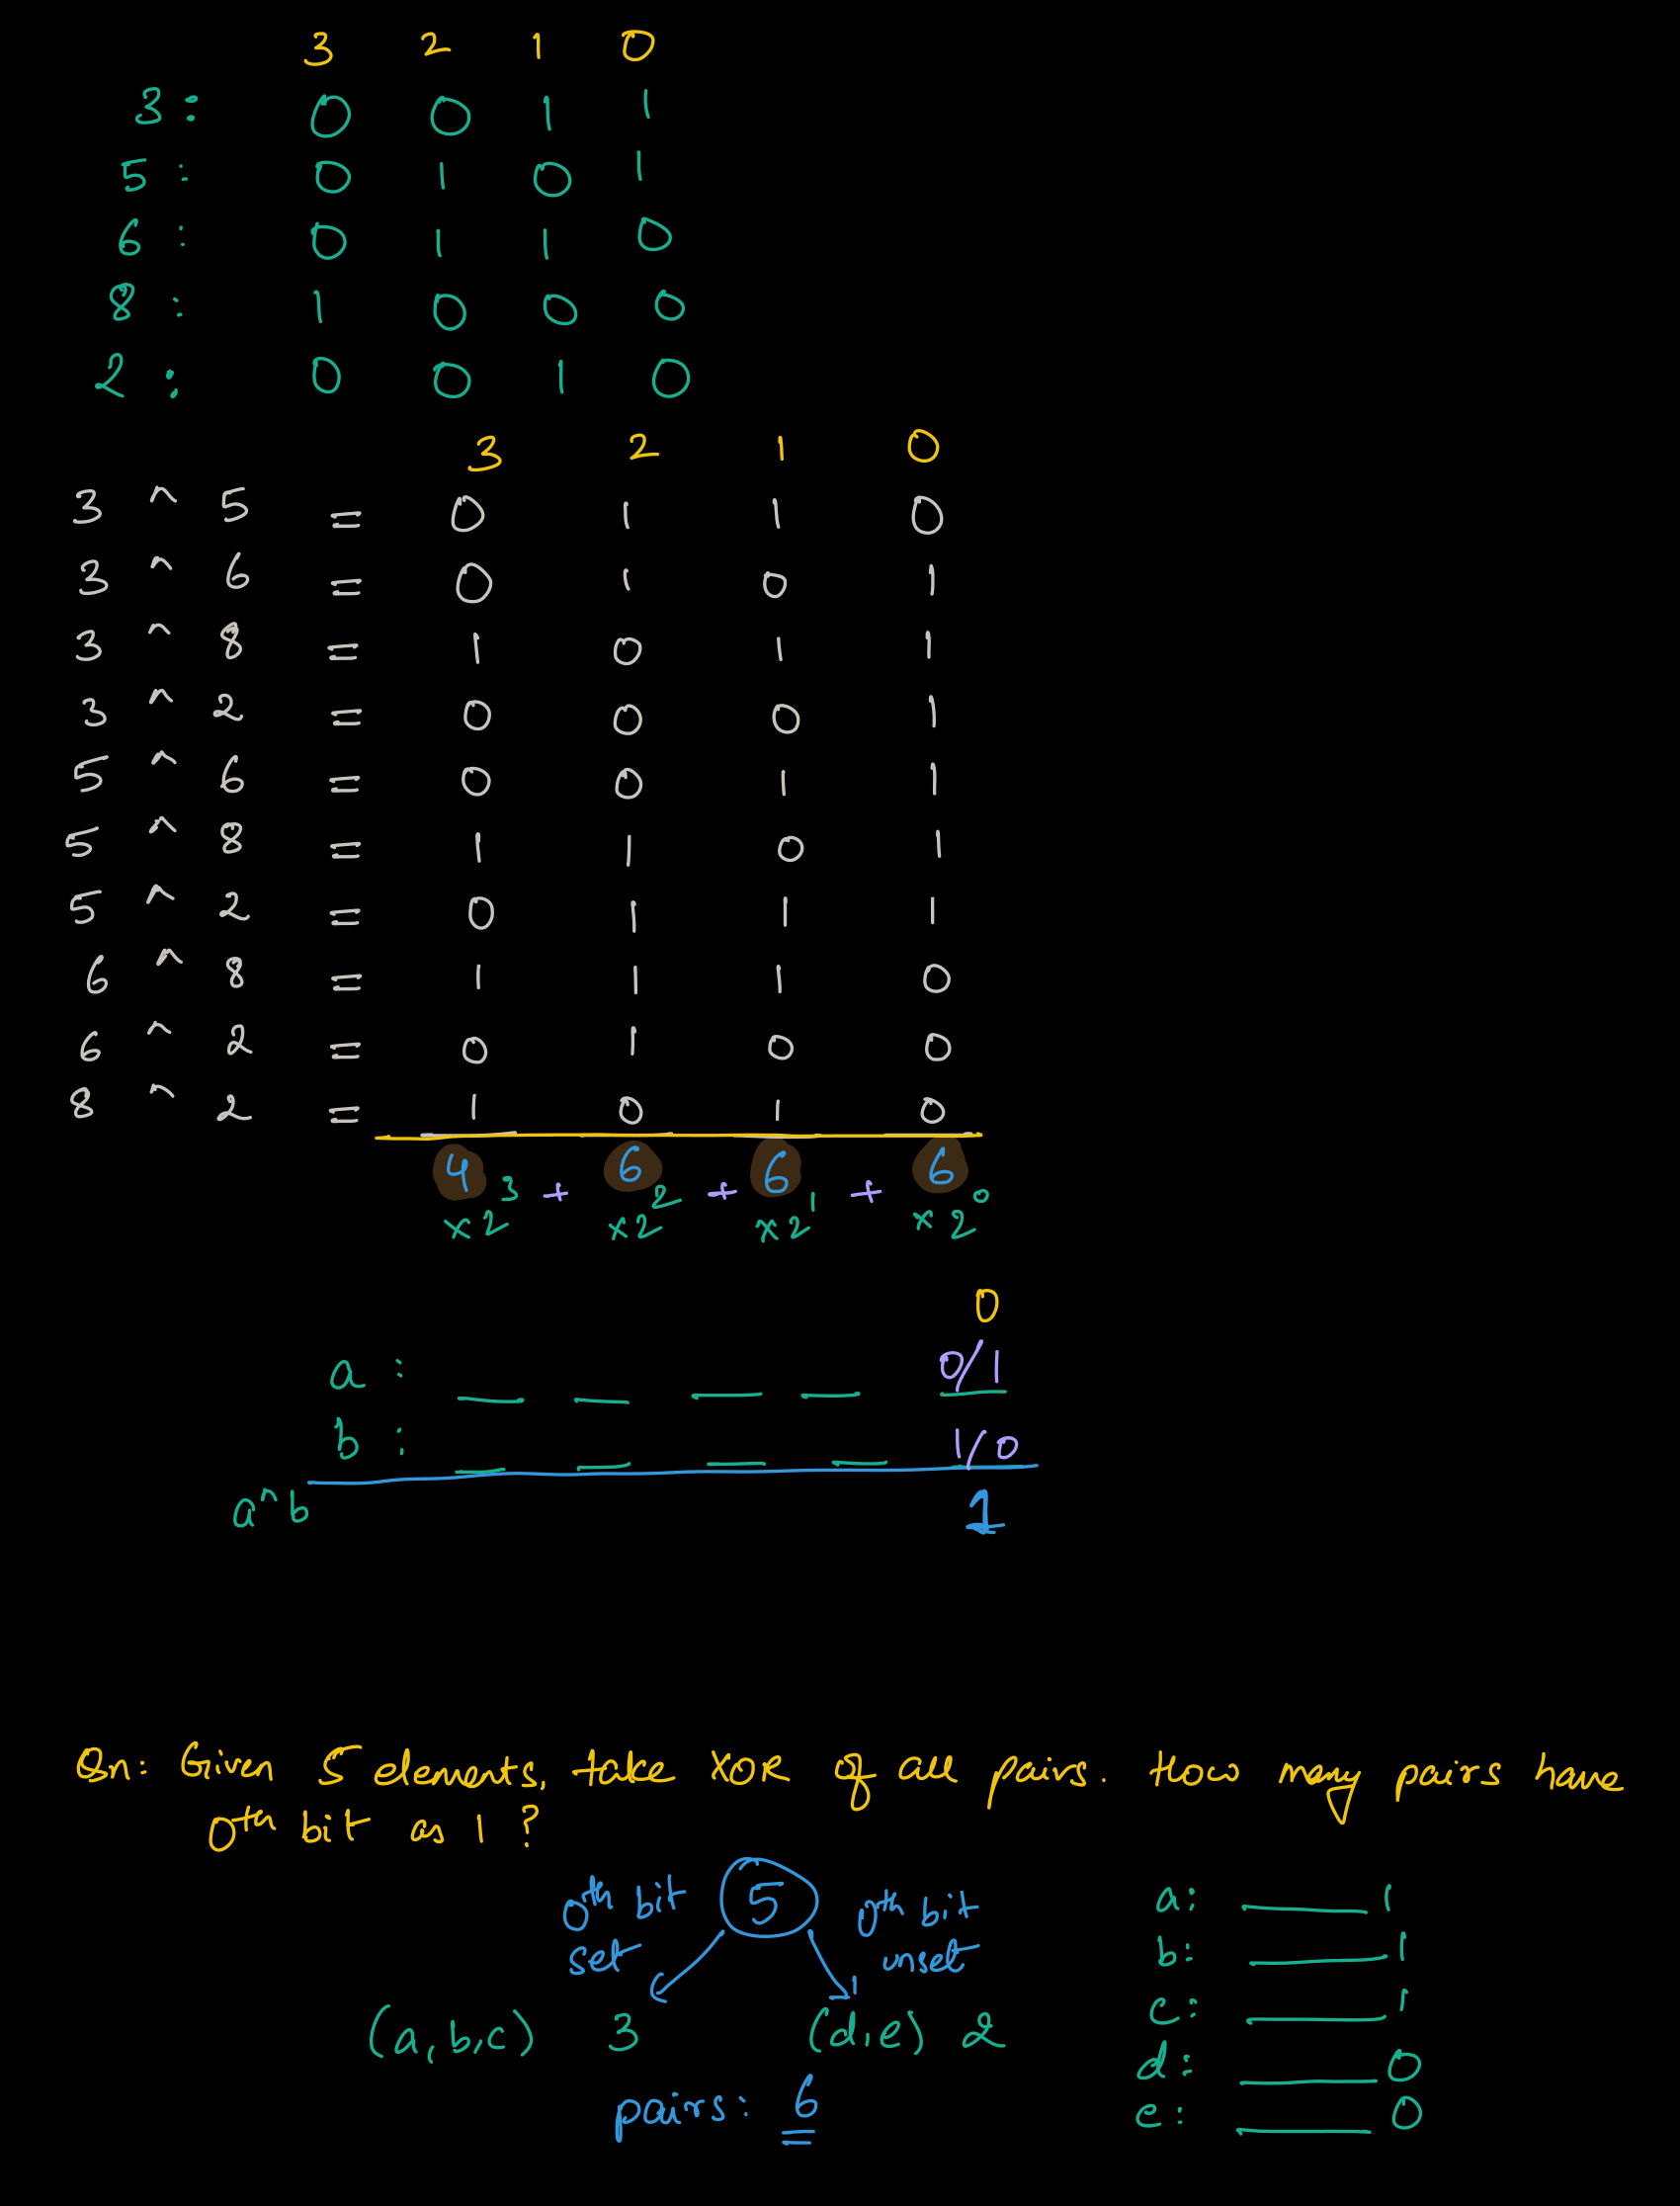 3 2 1 0
3 : 0 0 1 1
5 : 0 1 0 1
6 : 0 1 1 0
8 : 1 0 0 0
2 : 0 0 1 0
3 2 1 0
3 ^ 5 = 0 1 1 0
3 ^ 6 = 0 1 0 1
3 ^ 8 = 1 0 1 1
3 ^ 2 = 0 0 0 1
5 ^ 6 = 0 0 1 1
5 ^ 8 = 1 1 0 1
5 ^ 2 = 0 1 1 1
6 ^ 8 = 1 1 1 0
6 ^ 2 = 0 1 0 0
8 ^ 2 = 1 0 1 0
4 + 6 + 6 + 6
×2³ ×2² ×2¹ ×2⁰
0
a : __ __ __ __ 0/1
b : __ __ __ __ 1/0
a^b 1
Qn: Given 5 elements, take XOR of all pairs. How many pairs have
0th bit as 1 ?
0th bit set 5 0th bit unset
(a,b,c) 3 (d,e) 2
pairs: 6
a: ____ 1
b: ____ 1
c: ____ 1
d: ____ 0
e: ____ 0